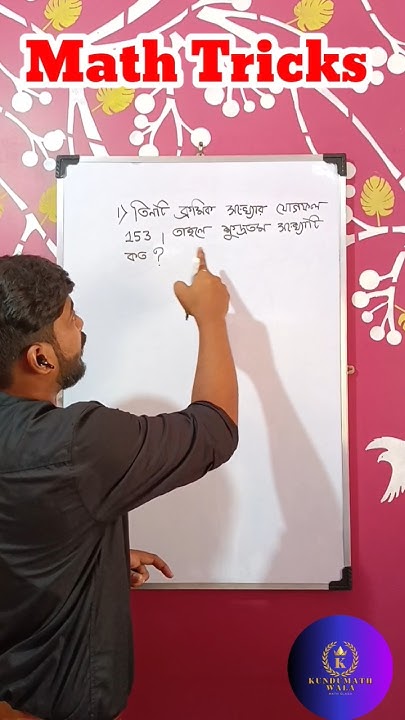 Math Tricks
১) তিনটি ক্রমিক সংখ্যার যোগফল
153 । তাহলে ক্ষুদ্রতম সংখ্যাটি
কত ?
K
KUNDUMATH
WALA